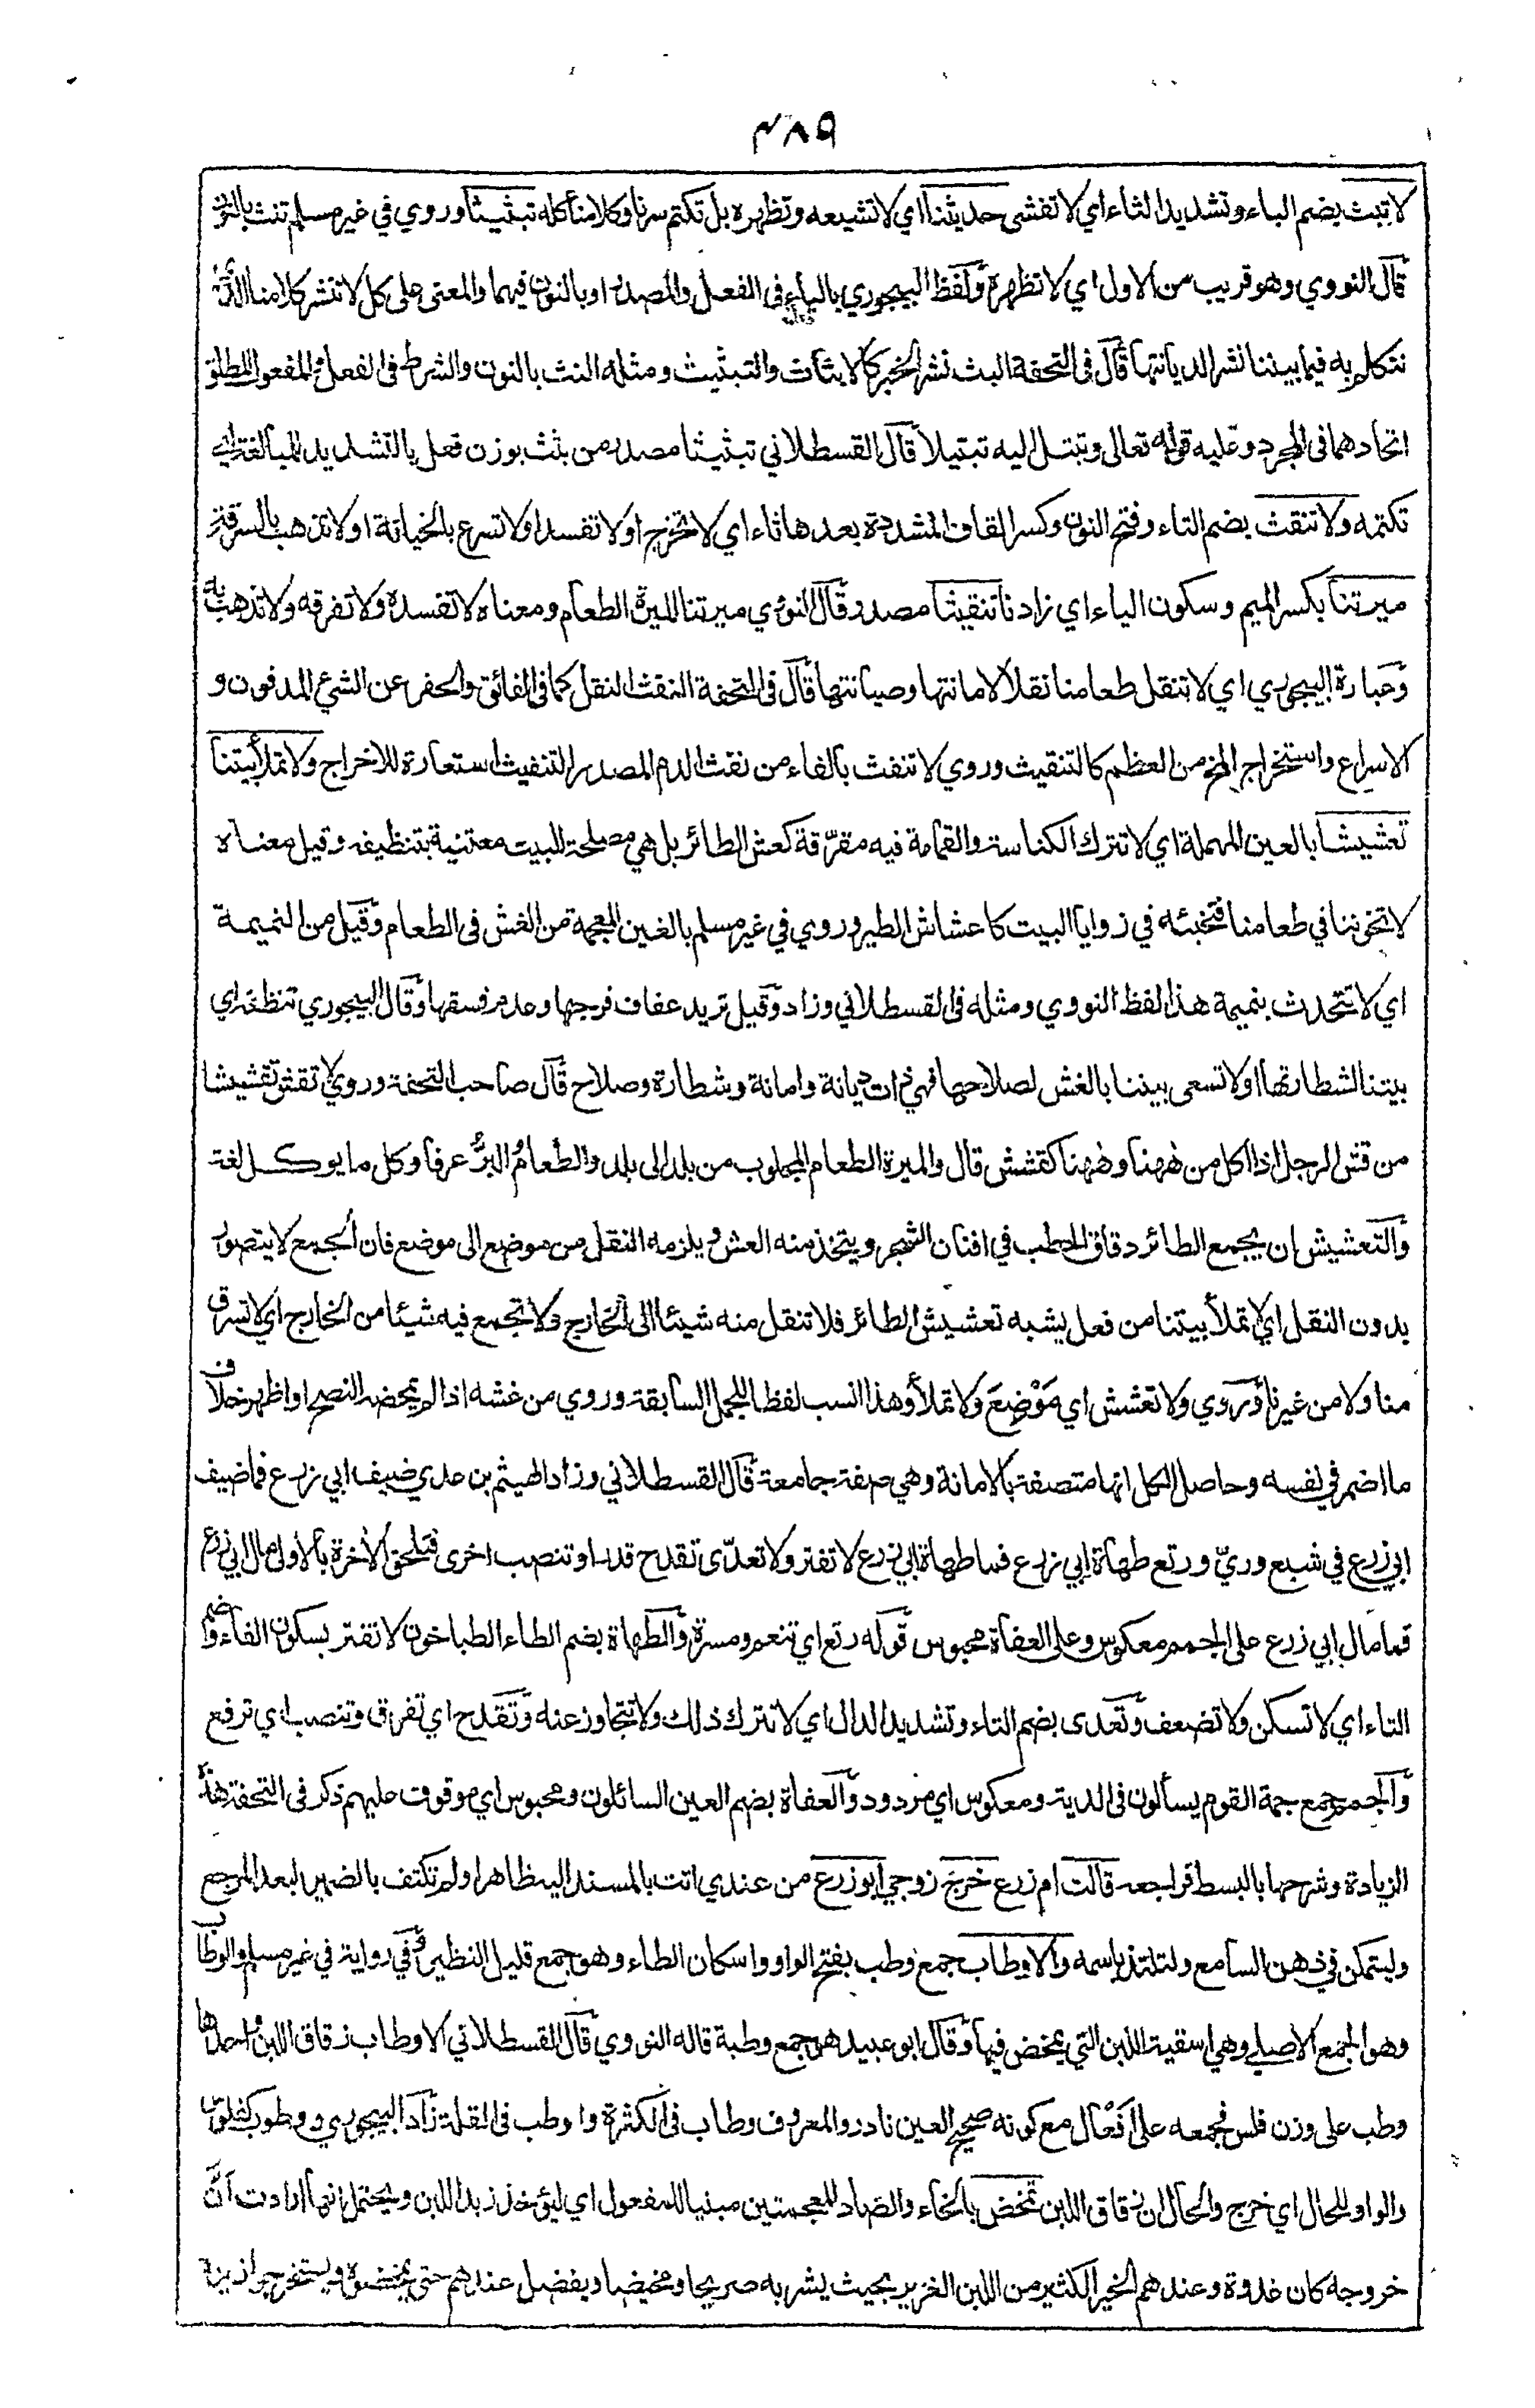 ٣٨٩
لا تبث بضم الباء وتشديد الثاء اي لا تفشى حديثنا اي لا تشيعه وتظهره بل تكتم سرنا وكلامنا كله تبثيثا وروي في غير مسلم تنث بالنون
قال النووي وهو قريب من الاول اي لا تظهره ولفظ البيجوري بالباء في الفعل والمصدر او بالنون فيهما والمعنى على كل لا تنشر كلامنا الذي
نتكلم به فيما بيننا نشرا لديانتها قال في التحفة البث نشر الخبر كالابثاث والتبثيث ومثله النث بالنون والشرط في الفعل والمفعول المطلق
اتحادهما في المجرد وعليه قوله تعالى وتبتل اليه تبتيلا قال القسطلاني تبثيثا مصدر من بثث بوزن فعل بالتشديد للمبالغة اي
تكتمه ولا تنقث بضم التاء وفتح النون وكسر القاف المشددة بعدها ثاء اي لا تخرج او لا تفسد او لا تسرع بالخيانة او لا تذهب بالسرقة
ميرتنا بكسر الميم وسكون الياء اي زادنا تنقيثا مصدر وقال النووي ميرتنا الميرة الطعام ومعناه لا تفسده ولا تفرقه ولا تذهب به
وعبارة البيجوري اي لا تنقل طعامنا نقلا لامانتها وصيانتها قال في التحفة النقث النقل كما في الفائق والحفر عن الشئ المدفون و
الاسراع واستخراج المخ من العظم كالتنقيث وروي لا تنفث بالفاء من نفث الدم المصدر التنفيث استعارة للاخراج ولا تملأ بيتنا
تعشيشا بالعين المهملة اي لا تترك الكناسة والقمامة فيه مفرّقة كعش الطائر بل هي مصلحة للبيت معتنية بتنظيفه وقيل معناه
لا تخوننا في طعامنا فتخبئه في زوايا البيت كاعشاش الطير وروي في غير مسلم بالغين المعجمة من الغش في الطعام وقيل من النميمة
اي لا تتحدث بنميمة هذا لفظ النووي ومثله في القسطلاني وزاد وقيل تريد عفاف فرجها وعدم فسقها وقال البيجوري تنظفه اي
بيتنا لشطارتها او لا تسعى بيننا بالغش لصلاحها فهي ذات ديانة وامانة وشطارة وصلاح قال صاحب التحفة وروي لا تقش تقشيشا
من قش الرجل اذا اكل من ههنا وههنا كقشش قال والميرة الطعام المجلوب من بلد الى بلد والطعام البرُّ عرفا وكل ما يوكل لغة
والتعشيش ان يجمع الطائر دقاق الحطب في افنان الشجر ويتخذ منه العش ويلزمه النقل من موضع الى موضع فان الجمع لا يتصور
بدون النقل اي لا تملأ بيتنا من فعل يشبه تعشيش الطائر فلا تنقل منه شيئا الى الخارج ولا تجمع فيه شيئا من الخارج اي لا تسرق
منا ولا من غيرنا وروي ولا تعشش اي مَوْضِعَ ولا تملأ وهذا انسب لفظا للجمل السابقة وروي من غشه اذا لم يمحضه النصح او اظهر خلاف
ما اضمر في نفسه وحاصل الكل انها متصفة بالامانة وهي صفة جامعة قال القسطلاني وزاد الهيثم بن عدي ضيف ابي زرع فما ضيف
ابي زرع في شبع وريّ ورتع طهاة ابي زرع فما طهاة ابي زرع لا تفتر ولا تعدّى تقدح قدرا وتنصب اخرى فتلحق الأخرة بالأولى مال ابي زرع
فما مال ابي زرع على الجمم معكوس وعلى العفاة محبوس قوله رتع اي تنعم ومسرة والطهاة بضم الطاء الطباخون لا تفتر بسكون الفاء وضم
التاء اي لا تسكن ولا تضعف وتعدى بضم التاء وتشديد الدال اي لا تترك ذلك ولا تتجاوز عنه وتقدح اي تفرق وتنصب اي ترفع
والجمم جمع جمة القوم يسألون في الدية ومعكوس اي مردود والعفاة بضم العين السائلون ومحبوس اي موقوف عليهم ذكر في التحفة هذه
الزيادة وشرحها بالبسط فراجعه قالت ام زرع خرج زوجي ابو زرع من عندي اتت بالمسند اليه ظاهرا ولم تكتف بالضمير لبعد المرجع
وليتمكن في ذهن السامع ولتلتذ باسمه والاوطاب جمع وطب بفتح الواو واسكان الطاء وهو جمع قليل النظير وفي رواية في غير مسلم والوطاب
وهو الجمع الاصلي وهي اسقية اللبن التي يمخض فيها وقال ابو عبيد هو جمع وطبة قاله النووي قال القسطلاني الاوطاب زقاق اللبن واحدها
وطب على وزن فلس فجمعه على اَفْعَال مع كونه صحيح العين نادر والمعروف وطاب في الكثرة واوطب في القلة زاد البيجوري ووطوب كفلوس
والواو للحال اي خرج والحال ان زقاق اللبن تمخض بالخاء والضاد المعجمتين مبنيا للمفعول اي ليؤخذ زبد اللبن ويحتمل انها ارادت انَّ
خروجه كان غدوة وعندهم الخير الكثير من اللبن الغزير بحيث يشربه صريحا ومخيضا ويفضل عندهم حتى يمخضوه ويستخرجوا زبده